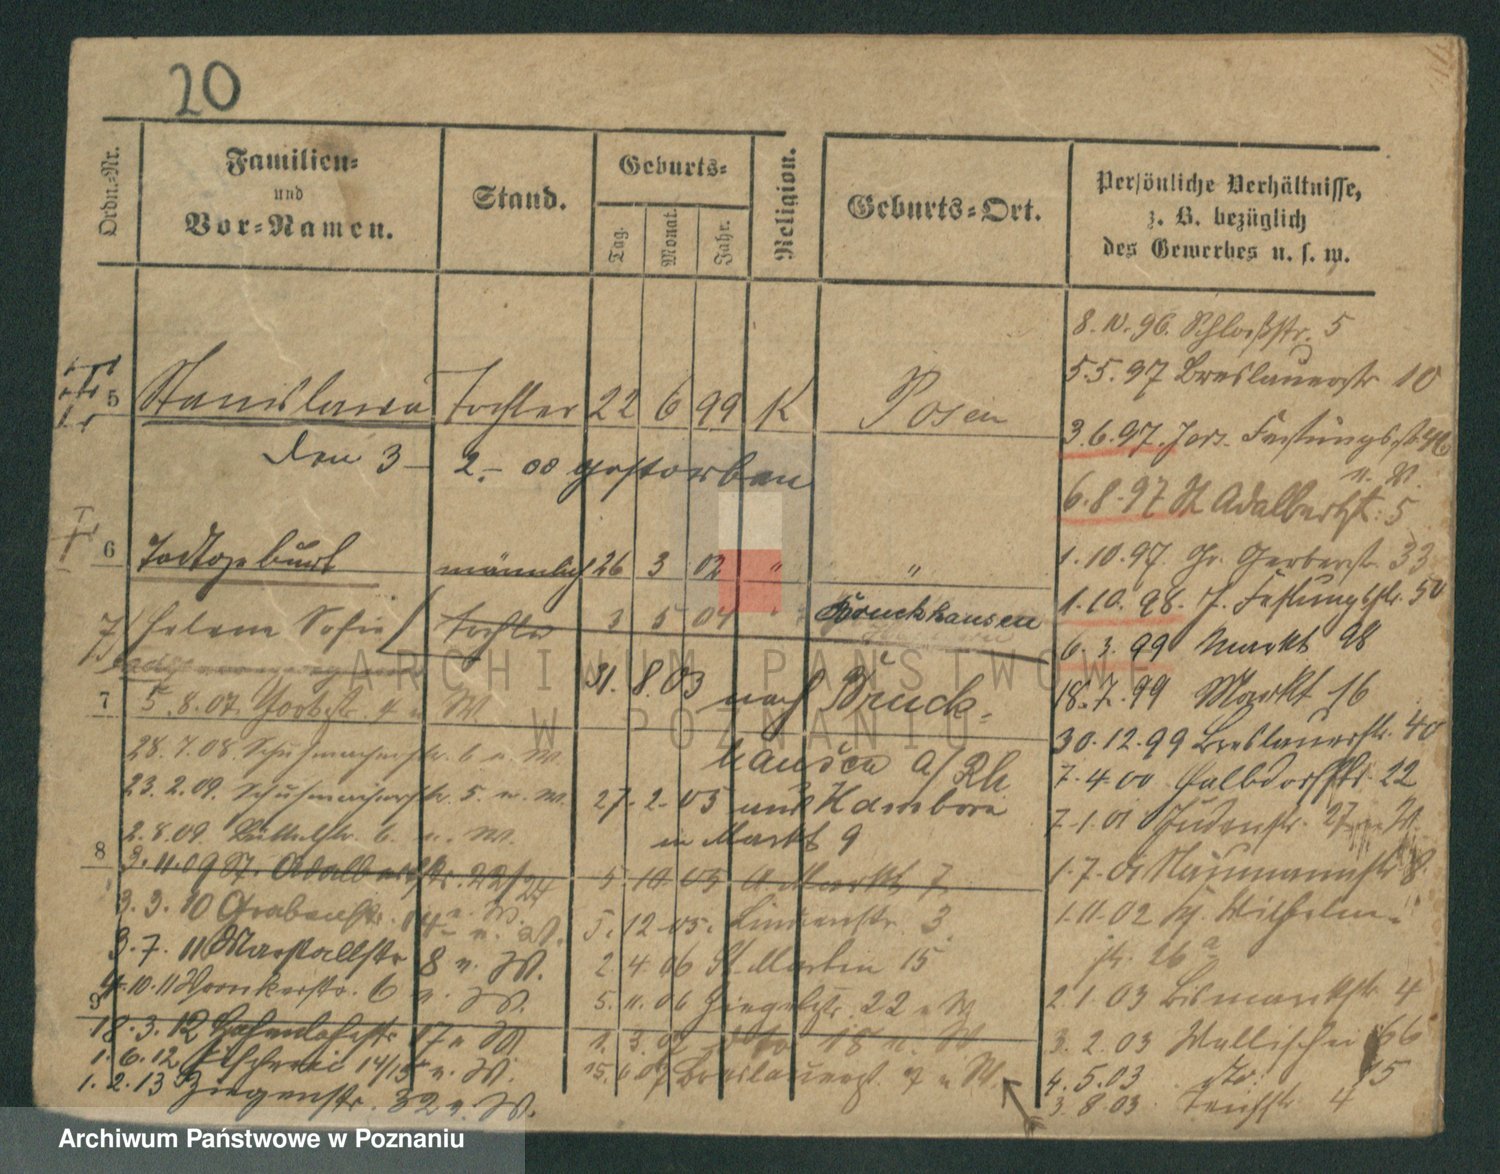 20
Ordn.-Nr.
Familien-
und
Vor-Namen.
Stand.
Geburts-
Tag.
Monat.
Jahr.
Religion.
Geburts-Ort.
Persönliche Verhältnisse,
z. B. bezüglich
des Gewerbes u. s. w.
8.10.96. Schloßstr. 5
5.5.97 Breslauerstr 10
5 Stanislawa Tochter 22 6 99 K Posen
3.6.97. Festungsstr
den 3 - 2. - 00 gestorben
6.8.97 St Adalbertstr. 5
6 Todtgeburt männlich 26 3 02 " "
1.10.97. Gr. Gerberstr. 33
7 Helene Sofie Tochter 3 5 04 " Bruckhausen
1.10.98. Festungsstr. 50
6.3.99 Markt 98
31. 8. 03 nach Bruck-
18.7.99 Markt 16
7 5.8.07. u W.
hausen a/Rh.
30.12.99 Breslauerstr. 40
28.7.08. Schuhmacherstr. 6 u W.
7.4.00 Halbdorfstr. 22
23.2.09. Schuhmacherstr. 5. u. W.
27-2-05 aus Hamborn
in Markt 9
7.1.01 Judenstr. 27
2.8.09 Büttelstr. 6. u. W.
8 3.11.09 St. Adalbertstr. 22/24
u. W.
5 10 05 a Markt 7
1.7.01 Naumannstr 8.
3.3.10 Grabenstr. 14 u. W.
5. 12 05. Lindenstr. 3
1.11.02 Wilhelm-
str. 26a
3.7.11 Marstallstr 8 u. W.
2 4 06 St. Martin 15
4.10.11 Wronkerstr. 6 u. W.
5. 11. 06 Ziegelstr. 22 u W
2.1.03 Bismarckstr. 4
9 18.3.12 Hohenlohestr. 17 u W
1. 3. 07 dto 18 u. W
3.2.03 Wallischei 66
1.6.12 Fischerei 14/15 u. W.
15. 6 07 Breslauerst. 9 u W.
4.5.03 dto. 75
1.2.13 Ziegenstr. 32 u. W.
3.8.03. Teichstr 4
ARCHIWUM PAŃSTWOWE
W POZNANIU
Archiwum Państwowe w Poznaniu